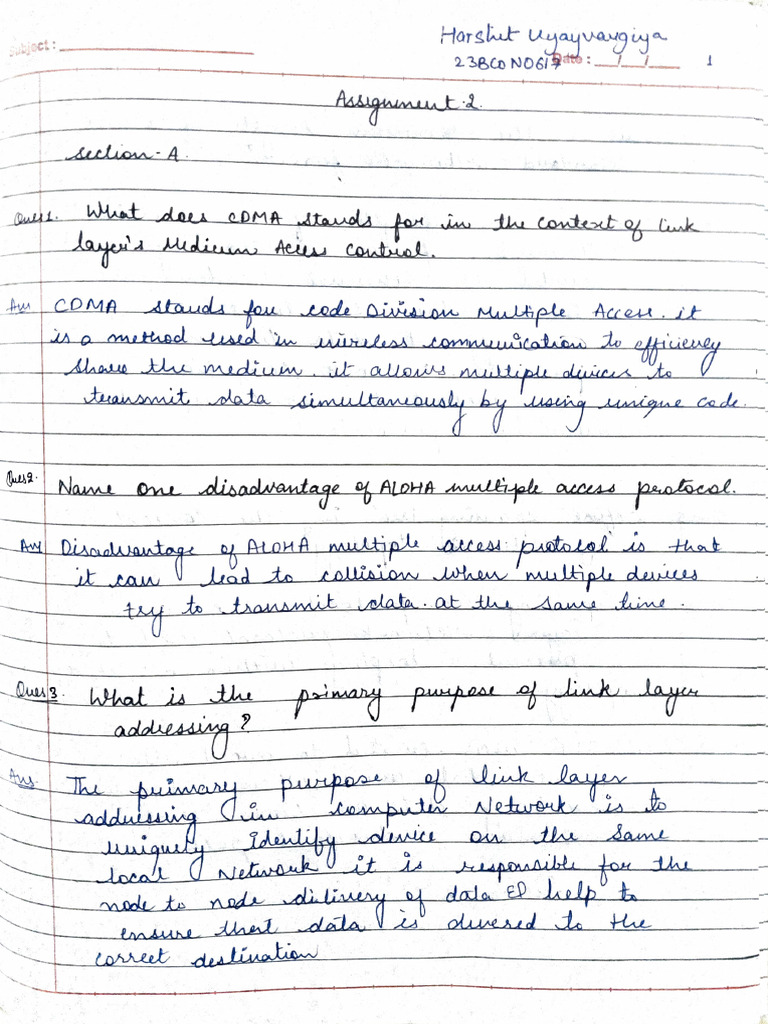 Harshit Vijayvargiya
Subject :
23BCON0617 Date : / / 1
Assignment-2.
Section-A.
Ques1. What does CDMA stands for in the context of link
layer's Medium Access Control.
Ans CDMA stands for code Division Multiple Access. it
is a method used in wireless communication to efficiency
share the medium. it allows multiple divices to
transmit data simultaneously by using unique code.
Ques2. Name one disadvantage of ALOHA multiple access protocol.
Ans Disadvantage of ALOHA multiple access protocol is that
it can lead to collision when multiple devices
try to transmit data. at the same time.
Ques3. What is the primary purpose of link layer
addressing?
Ans. The primary purpose of link layer
addressing in computer Network is to
uniquely Identify device on the same
local Network it is responsible for the
node to node dilivery of data & help to
ensure that data is divered to the
correct destination